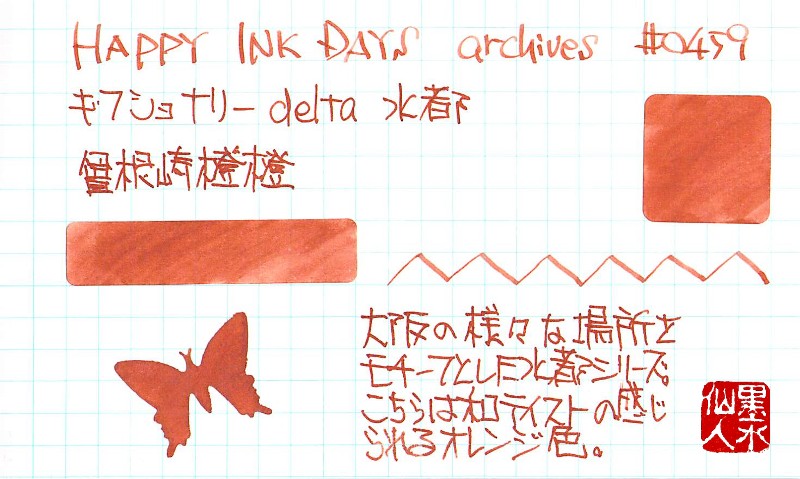 HAPPY INK DAYS archives #0459
ギフショナリー delta 水都
曽根崎橙橙
大阪の様々な場所を
モチーフとした水都シリーズ。
こちらは和テイストの感じ
られるオレンジ色。
墨水
仙人